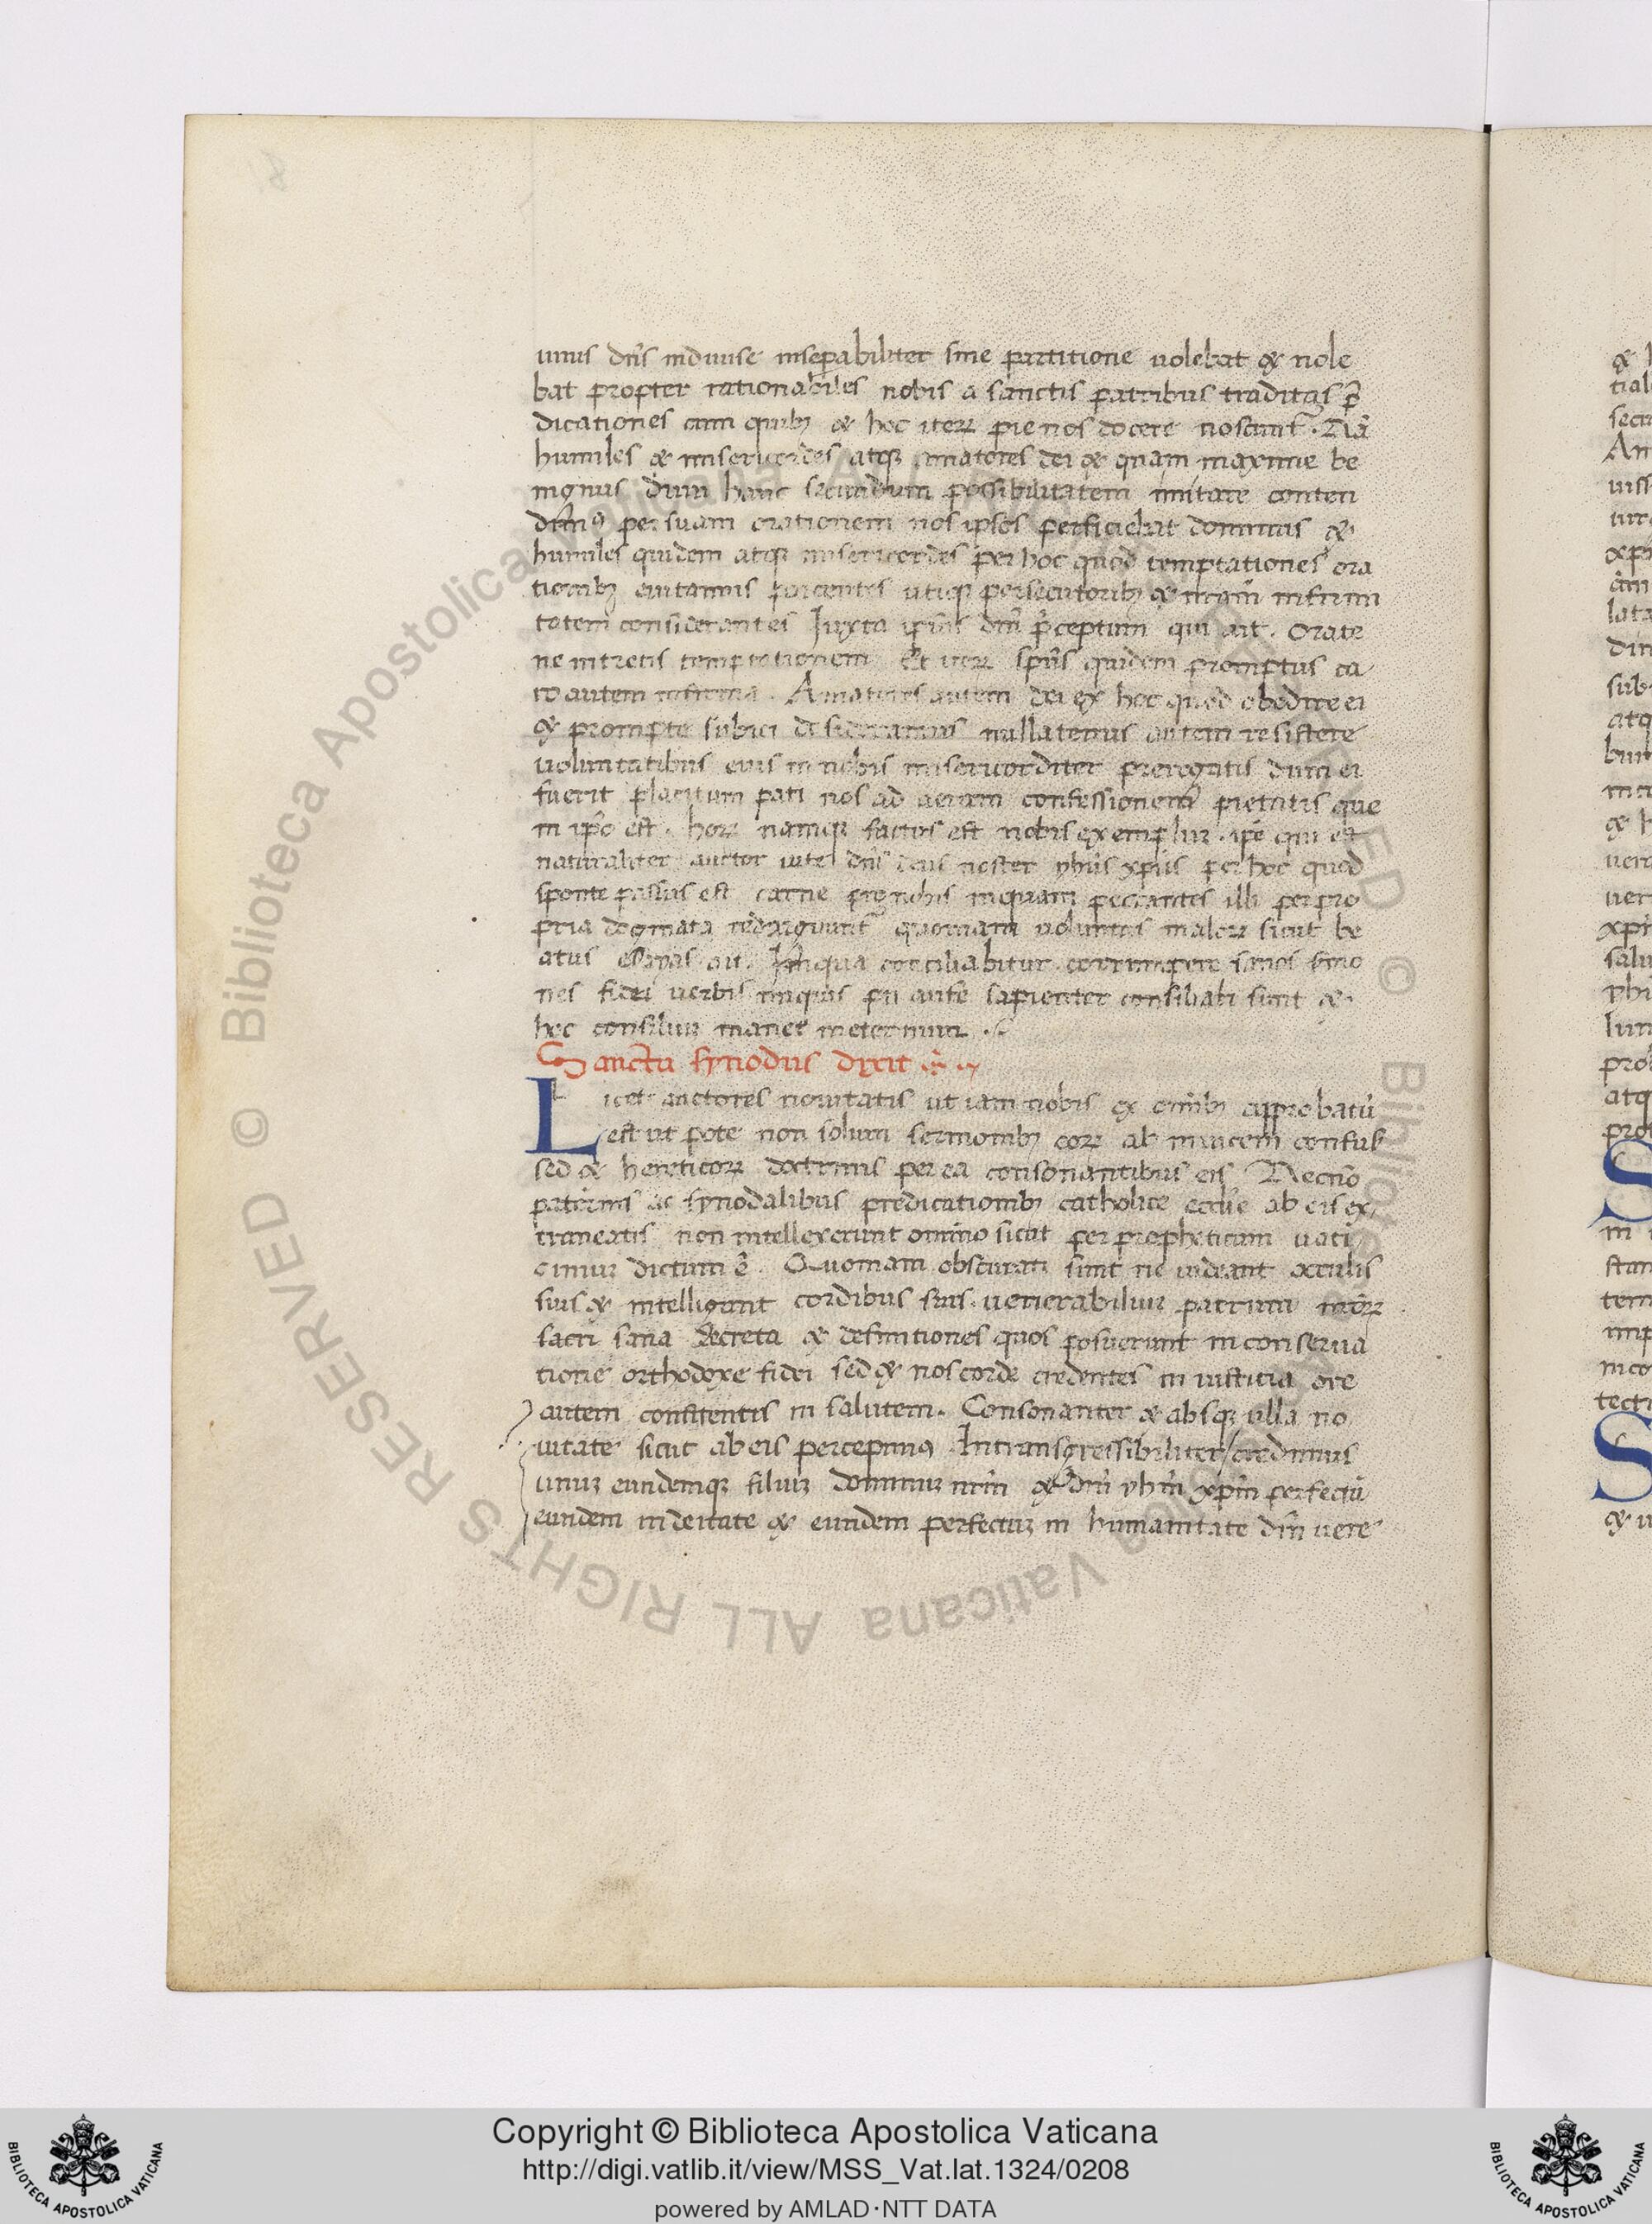 unus dn̄s indiuise insep̱abiliter sine partitione uolebat & nole
bat propter rationabiles nobis a sanctis patribus traditas p̄
dicationes cum quibꝫ & hoc iteꝝ pie nos docere noscunt᷒. Nā
humiles & misericordes atqꝫ amatores dei & quam maxime be
nignus dum hanc secundum possibilitatem imitare conten
dim᷒ per suam orationem nos ipsos perficiebat dominus &
humiles quidem atqꝫ misericordes per hoc quod temptationes ora
tionibꝫ euitamus parcentes utiqꝫ persecutoribꝫ & nr̄am infirmi
tatem considerantes Iuxta ipsius dn̄i p̄ceptum qui ait. Orate
ne intretis temptationem Et iteꝝ sp̄us quidem promptus ca
ro autem infirma. Amatores autem dei ex hoc quod obedire ei
& prompte subici desideramus nullatenus autem resistere
uoluntatibus eius in nobis misericorditer prerogatis dum ei
fuerit placitum pati nos ad ueram confessionem pietatis que
in ip̄o est. hoꝝ namqꝫ factus est nobis exempluꝫ. ip̄e qui est
naturaliter auctor uite dn̄s deus noster yhūs xp̄us per hoc quod
sponte passus est carne pro nobis inquam peccantes illi per pro
pria dogmata redarguunt᷒ quoniam uoluntas maloꝝ sicut be
atus ait. Iniqua conciliabitur corrumpere sanos
nes fidei uerbis iniquis sapienter consiliati sunt &
hoc consiliuꝫ manet in eternum.
Sancta synodus dixit
Licet auctores nouitatis ut iam nobis ex omībꝫ approbatū
est ut pote non solum sermonibꝫ eoꝝ ab inuicem confus
sed & hereticoꝝ doctrinis per ea consonantibus eis Necnō
patrinis ac synodalibus predicationibꝫ catholice eccl̄ie ab eis ex
traneatis non intellexerunt omīno sicut per propheticum uati
ciniuꝫ dictum ē. Quoniam obscurati sunt ne uideant oculis
suis & intelligant cordibus suis. uenerabiliuꝫ patrum nr̄oꝝ
sacri sana decreta & definitiones quos posuerunt in conserua
tione orthodoxe fidei sed & nos corde credentes in iustitia ore
autem confitentis in salutem. Consonanter & absqꝫ ulla no
uitate sicut ab eis percepim᷒ Intransgressibiliter credimus
unuꝫ eundemqꝫ filiuꝫ dominuꝫ nr̄m & dn̄m yhm̄ xp̄m perfectū
eundem in deitate & eundem perfectuꝫ in humanitate dm̄ uere
Copyright © Biblioteca Apostolica Vaticana
http://digi.vatlib.it/view/MSS_Vat.lat.1324/0208
powered by AMLAD·NTT DATA